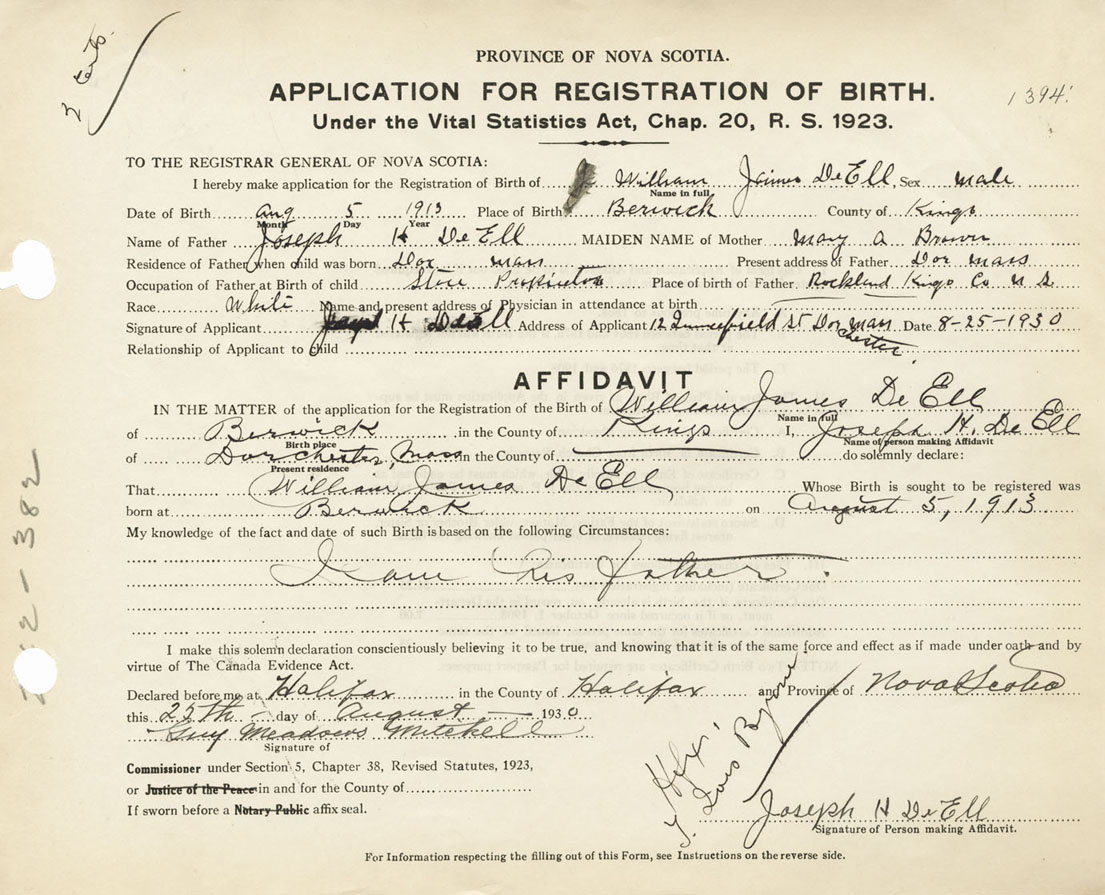 2 Certs.
PROVINCE OF NOVA SCOTIA.
APPLICATION FOR REGISTRATION OF BIRTH.
1394.
Under the Vital Statistics Act, Chap. 20, R. S. 1923.
TO THE REGISTRAR GENERAL OF NOVA SCOTIA:
I hereby make application for the Registration of Birth of William James DeEll, Sex male
Name in full
Date of Birth Aug 5 1913 Place of Birth Berwick County of Kings
Month Day Year
Name of Father Joseph H DeEll MAIDEN NAME of Mother Mary A Brown
Residence of Father when child was born Dor mass Present address of Father Dor mass
Occupation of Father at Birth of child Store Place of birth of Father Rockland Kings Co N S.
Race White Name and present address of Physician in attendance at birth
Signature of Applicant H DeEll Address of Applicant 12 St Dorchester mass Date 8-25-1930
Relationship of Applicant to child
AFFIDAVIT
IN THE MATTER of the application for the Registration of the Birth of William James De Ell
Name in full
of Berwick in the County of Kings I, Joseph H. De Ell
Birth place Name of person making Affidavit
of Dorchester, Mass in the County of do solemnly declare:
Present residence
That William James De Ell Whose Birth is sought to be registered was
born at Berwick on August 5, 1913
My knowledge of the fact and date of such Birth is based on the following Circumstances:
I am his father.
I make this solemn declaration conscientiously believing it to be true, and knowing that it is of the same force and effect as if made under oath and by
virtue of The Canada Evidence Act.
Declared before me at Halifax in the County of Halifax and Province of Nova Scotia
this 25th day of August 1930
Guy Meadows Mitchell
Signature of
Commissioner under Section 5, Chapter 38, Revised Statutes, 1923,
or Justice of the Peace in and for the County of
If sworn before a Notary Public affix seal.
Hfx
Lois Byrne
Joseph H DeEll
Signature of Person making Affidavit.
For Information respecting the filling out of this Form, see Instructions on the reverse side.
2 - 382